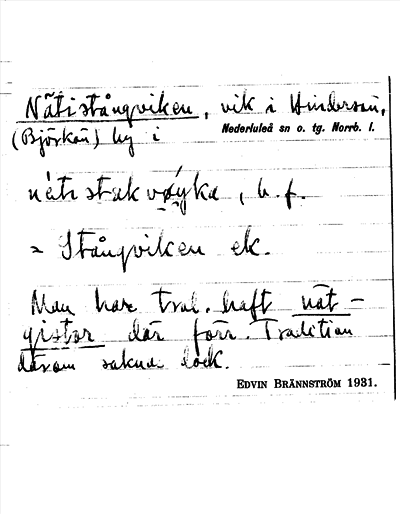 Nätistångviken, vik i Hindersön,
(Björkön) by i Nederluleå sn o. tg. Norrb. l.
nèti stak vøyka, b.f.
= Stångviken ek.
Man har trol. haft nät-
gistor där förr. Tradition
därom saknas dock.
EDVIN BRÄNNSTRÖM 1931.